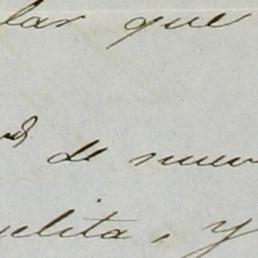 lar que
de nuev
elita, y